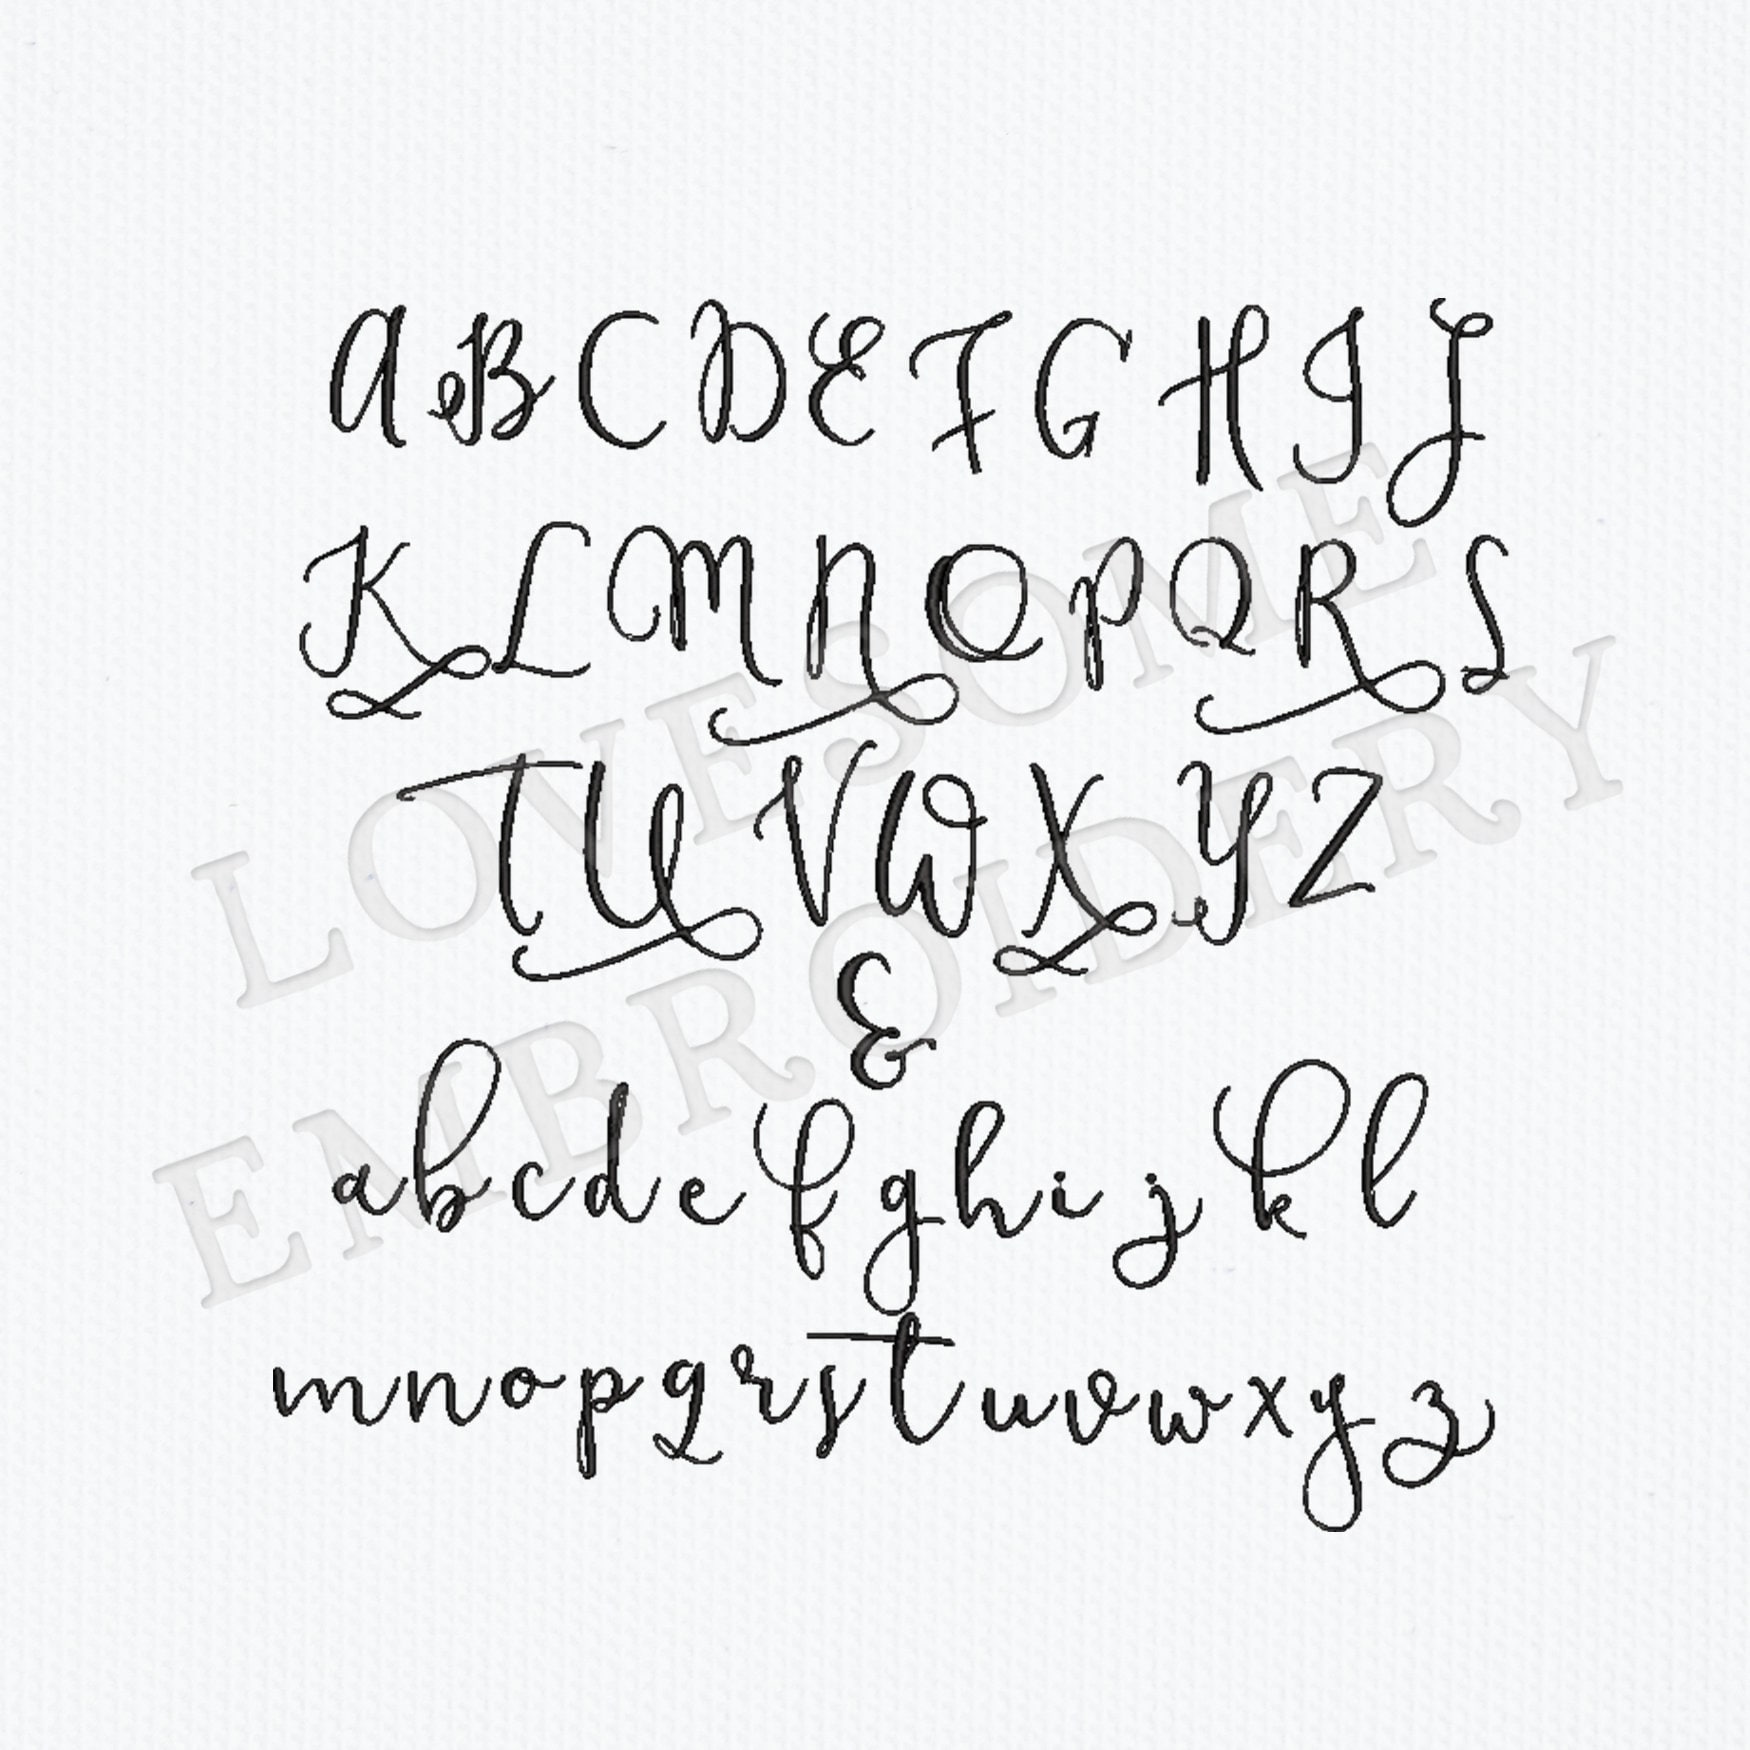 A B C D E F G H I J
K L M N O P Q R S
T U V W X Y Z
&
a b c d e f g h i j k l
m n o p q r s t u v w x y z
LOVESOME
EMBROIDERY